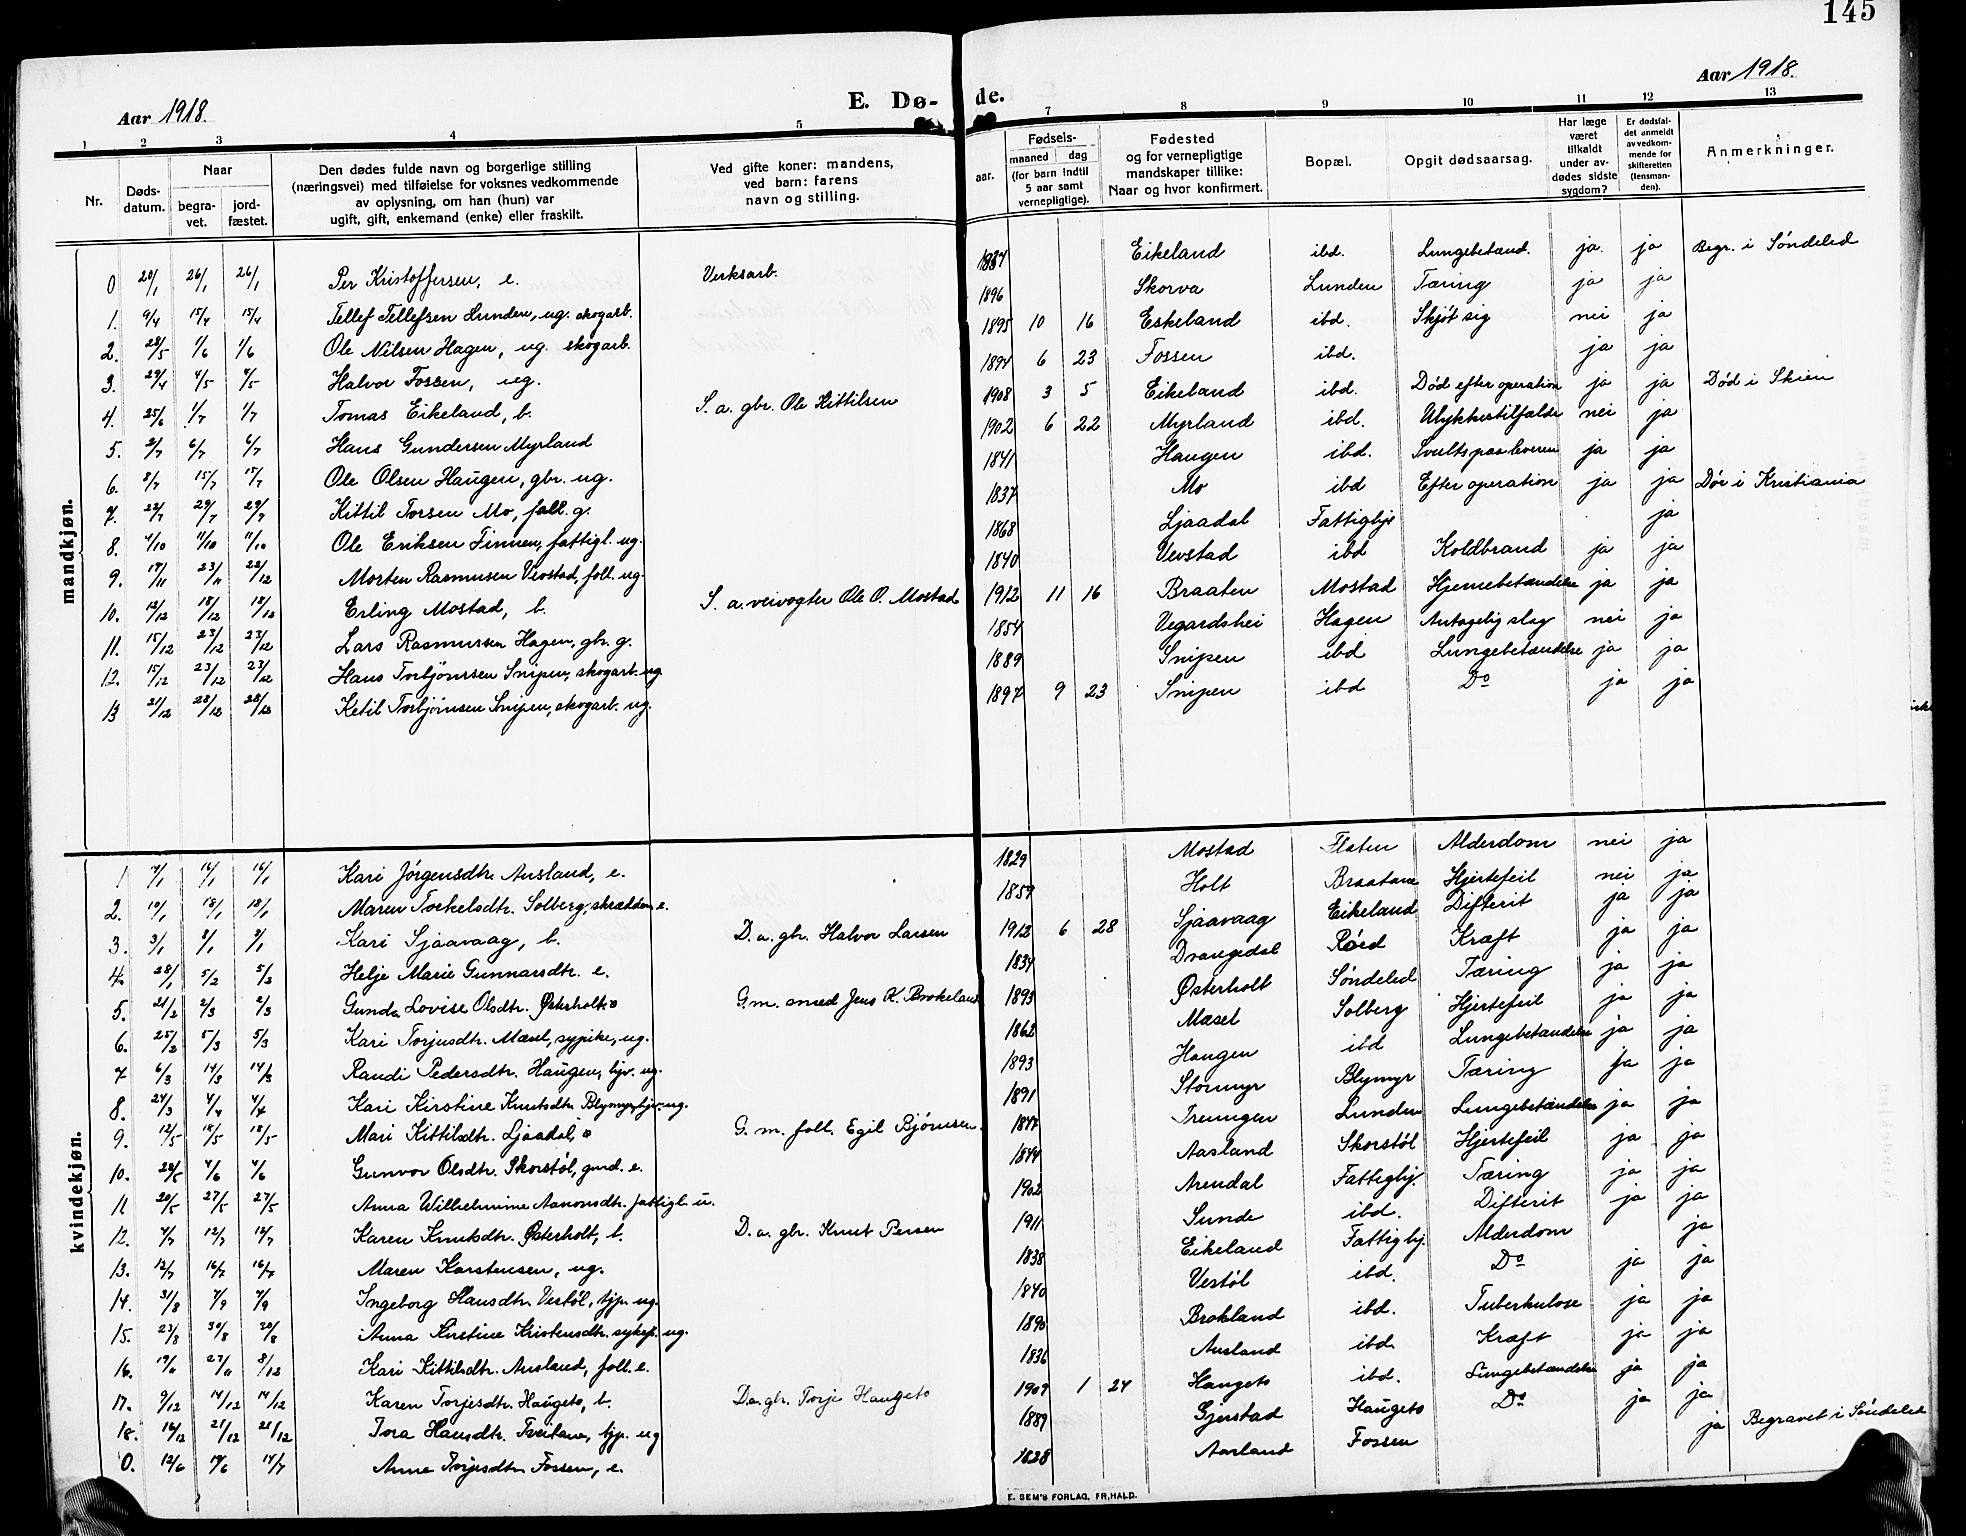 145
Aar 1918.
E. Dø-de.
Aar 1918.
1 2 3 4 5 7 8 9 10 11 12 13
Nr.
Døds-datum.
Naar
begra-vet.
jord-fæstet.
Den dødes fulde navn og borgerlige stilling
(næringsvei) med tilføielse for voksnes vedkommende
av oplysning, om han (hun) var
ugift, gift, enkemand (enke) eller fraskilt.
Ved gifte koner: mandens,
ved barn: farens
navn og stilling.
Fødsels-
aar.
maaned dag
(for barn indtil
5 aar samt
vernepligtige).
Fødested
og for vernepligtige
mandskaper tillike:
Naar og hvor konfirmert.
Bopæl.
Opgit dødsaarsag.
Har læge
været
tilkaldt
under av-
dødes sidste
sygdom?
Er dødsfal-
det anmeldt
av vedkom-
mende for
skifteretten
(lensman-
den).
Anmerkninger.
mandkjøn.
0 20/1 26/1 26/1 Per Kristoffersen, e. Verksarb. Eikeland ibd. Lungebetænd. ja. ja Begr. i Søndeled
1. 9/4 15/4 15/4 Tellef Tellefsen Lunden, ug. skogarb. 1896 Skorva Lunden Tæring ja ja
2. 28/5 1/6 1/6 Ole Nilsen Hagen, ug. skogarb. 1895 10 16 Eskeland ibd. Skjøt sig nei ja
3. 29/4 4/5 4/5 Halvor Fossen, ug. 1894 6 23 Fossen ibd. ja ja
4. 25/6 1/7 1/7 Tomas Eikeland, b. S. a. gbr. Ole Kittilsen 1908 3 5 Eikeland ibd. Død efter operation ja ja Død i Skien
5. 2/7 6/7 6/7 Hans Gundersen Myrland 1902 6 22 Myrland ibd. Ulykkestilfælde nei ja
6. 8/7 15/7 15/7 Ole Olsen Haugen, gbr. ug. 1841 Haugen ibd. Svulst paa leveren ja ja
7. 22/7 29/7 29/7 Kittil Torsen Mo, foll. g. 1837 Mo ibd Efter operation ja ja Dør i Kristiania
8. 4/10 11/10 11/10 Ole Eriksen Finnen, fattigl. ug. 1868 Ljaadal Fattigbj. ja
9. 17/11 23/11 22/12 Morten Rasmusen Vevstad, foll. ug. 1840 Vevstad ibd Koldbrand ja ja
10. 12/12 18/12 18/12 Erling Mostad, b. S. a. veivogter Ole O. Mostad 1912 11 16 Braaten Mostad Hjernebetændelse ja ja
11. 15/12 23/12 23/12 Lars Rasmussen Hagen, gbr. g. 1854 Vegardshei Hagen Antagelig slag nei ja
12. 15/12 23/12 23/12 Hans Torbjørnsen Snipen, skogarb. ug. 1889 Snipen ibd Lungebetændelse ja ja
13 21/12 28/12 28/12 Ketil Torbjørnsen Snipen, skogarb. ug. 1897 9 23 Snipen ibd Do ja ja
kvindekjøn.
1 7/1 16/1 16/1 Kari Jørgensdtr. Ausland, e. 1829 Mostad Flaten Alderdom nei ja
2. 10/1 18/1 18/1 Maren Torkelsdtr. Solberg, skrædden. e. 1857 Holt Braatane Hjertefeil nei ja
3. 3/1 8/1 9/1 Kari Sjaavaag, b. D. a. gbr. Halvor Larsen 1912 6 28 Sjaavaag Eikeland Difterit ja ja
4. 28/1 5/2 5/2 Helje Marie Gunnarsdtr. e. 1834 Drangedal Røed Kræft ja ja
5. 21/2 2/3 2/3 Gunda Lovise Olsdtr. Østerholt G. m. smed Jens K. Brokeland 1893 Østerholt Søndeled Tæring ja ja
6. 25/2 5/3 5/3 Kari Torjusdtr. Mæsel, sypike, ug. 1862 Mæsel Solberg Hjertefeil ja ja
7 6/3 14/3 14/3 Randi Pedersdtr. Haugen, bjv. ug. 1893 Haugen ibd Lungebetændelse ja ja
8. 24/3 4/4 4/4 Kari Kirstine Knutsdtr. Blymyr, bjv. ug. 1891 Stormyr Blymyr Tæring ja ja
9. 12/5 18/5 18/5 Mari Kittilsdtr. Ljaadal, G. m. foll. Egil Bjørnsen. Treungen Lunden Lungebetændelse ja ja
10. 28/5 4/6 4/6 Gunvor Olsdtr. Skorstøl, gmd. e. 1844 Aasland Skorstøl Hjertefeil ja ja
11 20/5 27/5 27/5 Anna Wilhelmine Aanonsdtr. fattigl. u. 1902 Arendal Fattigbj. Tæring ja ja
12. 4/7 12/7 12/7 Karen Knutsdtr. Østerholt, b. D. a. gbr. Knut Persen 1911 Sunde ibd. Difterit ja ja
13. 12/7 16/7 16/7 Maren Karstensen, ug. 1838 Eikeland Fattigbj. Alderdom ja
14. 31/8 7/9 7/9 Ingeborg Hansdtr. Vestøl, tjp. ug. 1840 Vestøl ibd. Do ja ja
15. 23/8 30/8 30/8 Anna Kirstine Kristensdtr. sykepl. ug. 1890 Brokland ibd. Tuberkulose ja ja
16. 27/11 8/12 Kari Kittilsdtr. Ausland, foll. e. 1836 Ausland ibd. Kræft ja ja
17. 9/12 14/12 14/12 Karen Torjesdtr. Haugeto, b. D. a. gbr. Torje Haugeto 1909 1 24 Haugeto ibd. Lungebetændelse ja ja
18. 16/12 21/12 21/12 Tora Hansdtr. Tveitane, tjp. ug 1889 Gjerstad Haugeto Do ja ja
0. 12/6 14/7 Anne Torjesdtr. Fossen, e. 1828 Aasland Fossen ja Begravet i Søndeled
E. SEM'S FORLAG, FR.HALD.